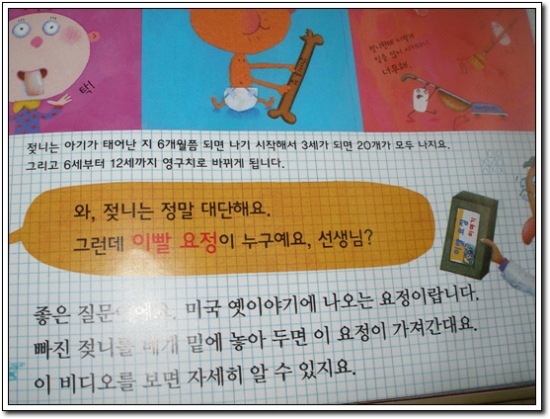 탁!
너무해.
젖니는 아기가 태어난 지 6개월쯤 되면 나기 시작해서 3세가 되면 20개가 모두 나지요.
그리고 6세부터 12세까지 영구치로 바뀌게 됩니다.
와, 젖니는 정말 대단해요.
그런데 이빨 요정이 누구예요, 선생님?
좋은 미국 옛이야기에 나오는 요정이랍니다.
빠진 젖니를 베개 밑에 놓아 두면 이 요정이 가져간대요.
이 비디오를 보면 자세히 알 수 있지요.